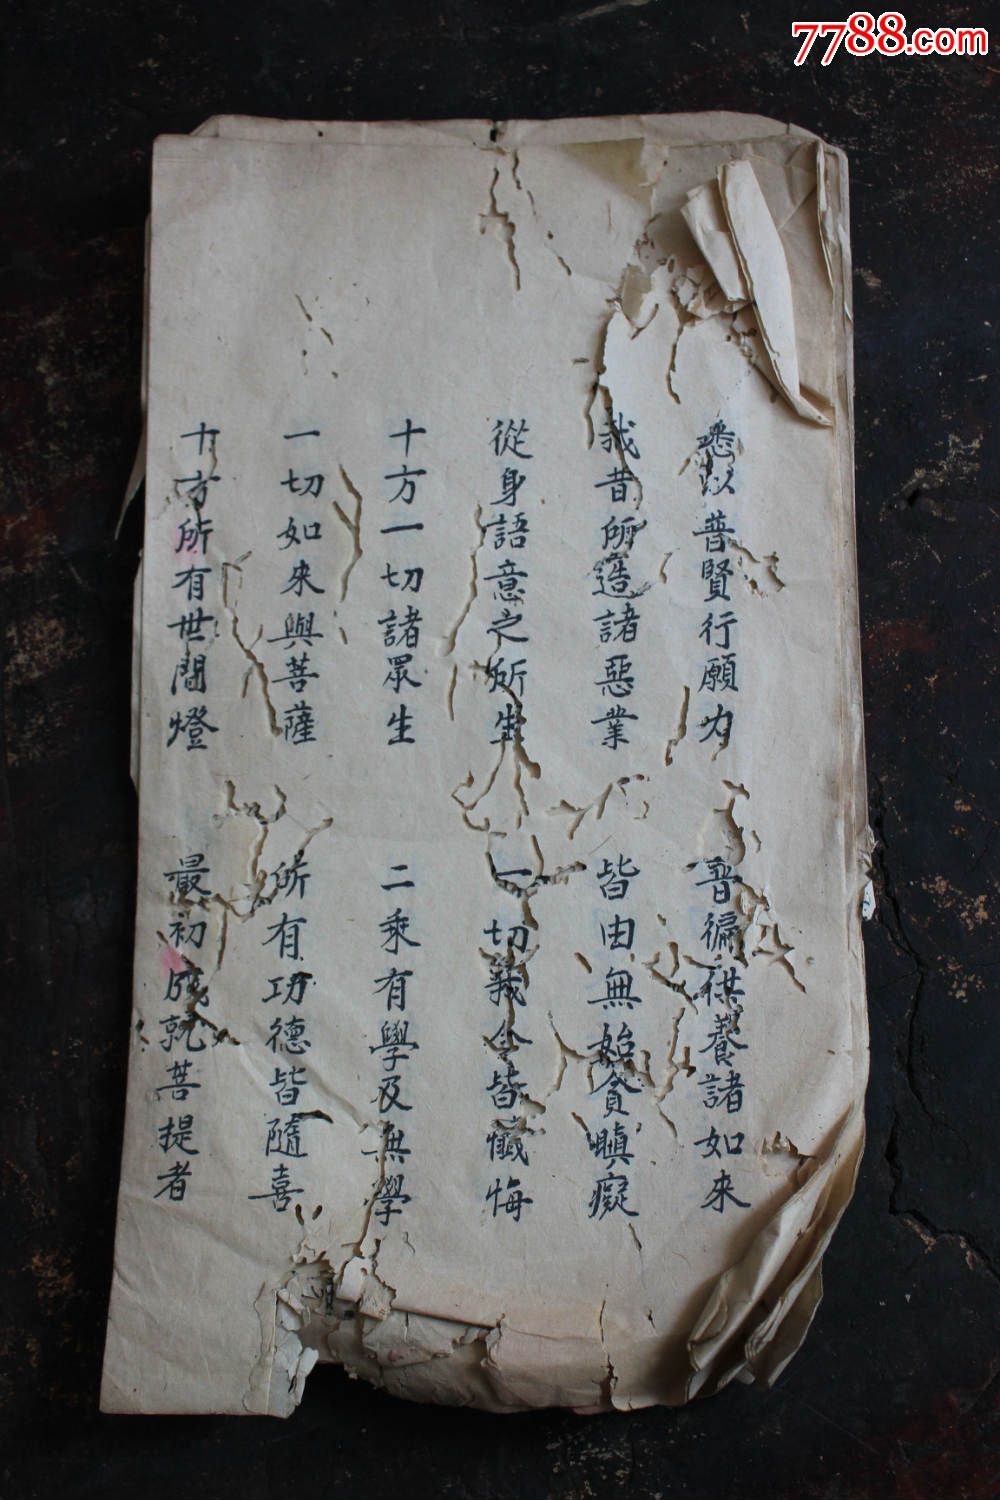 7788.com
悉以普賢行願力 普徧供養諸如來
我昔所造諸惡業 皆由無始貪瞋癡
從身語意之所生 一切我今皆懺悔
十方一切諸眾生 二乘有學及無學
一切如來與菩薩 所有功德皆隨喜
十方所有世間燈 最初成就菩提者